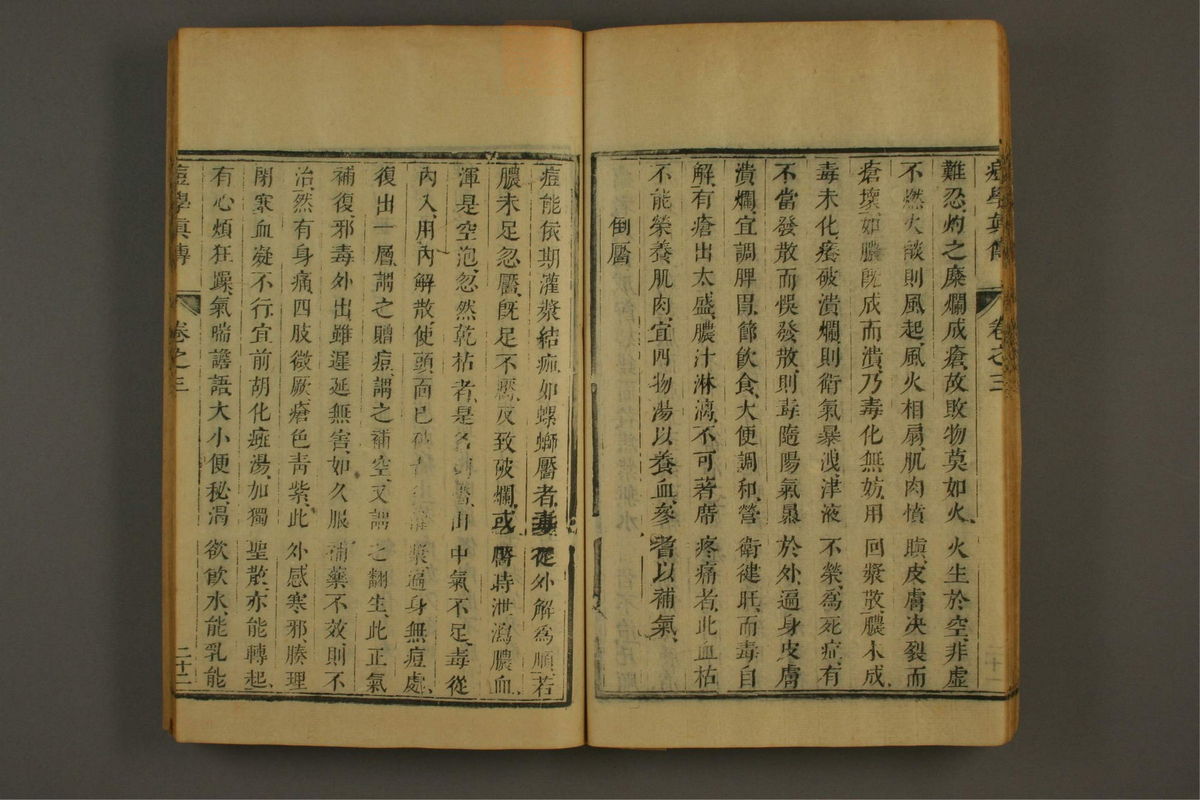 痘學眞傳 卷之三
難忍灼之糜爛成瘡故敗物莫如火火生於空非虛
不燃火談則風起風火相扇肌肉憤瞋皮膚决裂而
瘡壞如膿旣成而潰乃毒化無妨用回漿散膿未成
毒未化瘡破潰爛則衛氣暴洩津液不榮爲死症有
不當發散而悞發散則毒隨陽氣暴於外遍身皮膚
潰爛宜調脾胃節飮食大便調和營衛徤旺而毒自
解有瘡出太盛膿汁淋漓不可著席疼痛者此血枯
不能榮養肌肉宜四物湯以養血參耆以補氣
倒靨
痘能依期灌漿結痂如螺螄靨者毒從外解爲順若
膿未足忽靨旣足不靨反致破爛或靨時泄瀉膿血
渾是空泡忽然乾枯者是名倒靨由中氣不足毒從
內入用內解散使頭面已破漿遍身無痘處
復出一層謂之贈痘謂之補空又謂之翻生此正氣
補復邪毒外出雖遲延無害如久服補藥不效則不
治然有身痛四肢微厥瘡色靑紫此外感寒邪腠理
閉寒血凝不行宜前胡化癍湯加獨聖散亦能轉起
有心煩狂躁氣喘譫語大小便秘渴欲飮水能乳能
痘學眞傳 卷之三 二十二